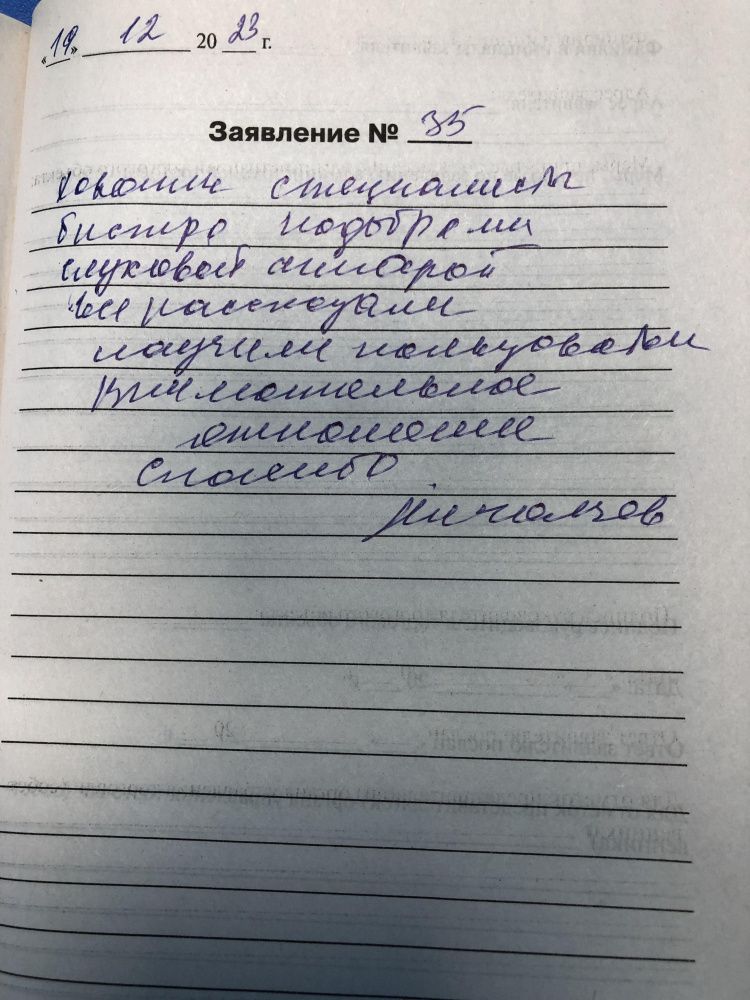 «19» 12 2023 г.
Заявление № 35
специалисты
быстро подобрали
слуховой аппарат
все рассказали
научили пользоваться
внимательное
отношение
спасибо